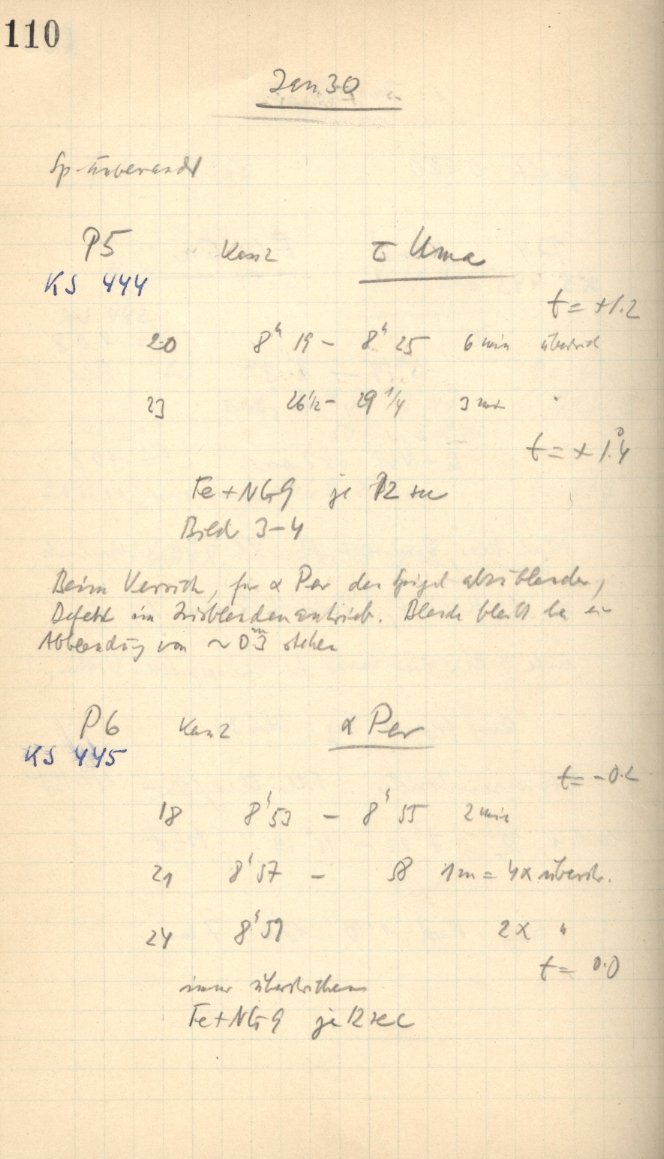 110
Jan 30
P5 Kam 2 τ Uma
KS 444
t = +1.2
20 8h 19 – 8h 25 6 min
23 26 1/2 – 29 1/4 3 min "
t = +1.°4
Fe + NG 9 je 12 sec
Bild 3–4
Beim Versuch, für α Per den Spiegel abzublenden,
Defekt im Irisblendenantrieb. Blende bleibt
Abblendung von ~ 0m3 stehen
P6 Kam 2 α Per
KS 445
18 8h 53 – 8h 55 2 min
21 8h 57 – 58 1m = 4x überstr.
24 8h 59 2x "
t = 0.0
immer überstrichen
Fe + NG 9 je 12 sec